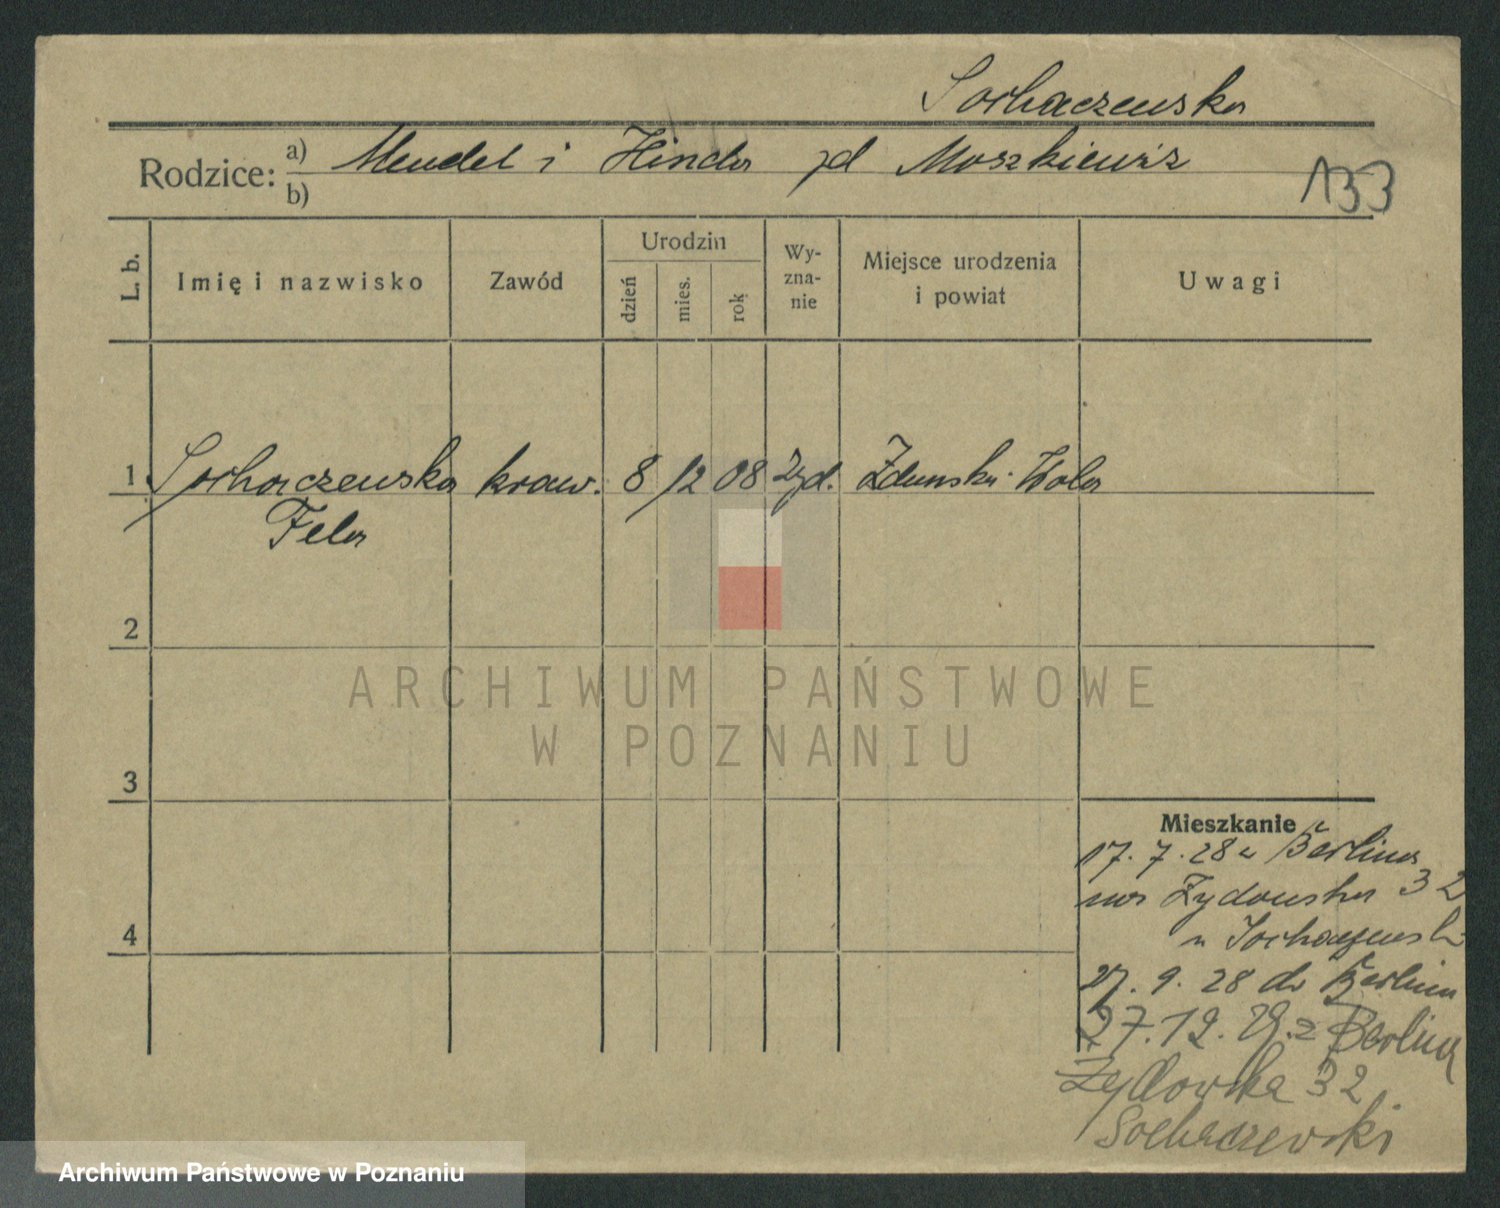 Sochaczewska
Rodzice: a) Mendel i Hinda zd Moszkiewicz
b)
133
L. b.
Imię i nazwisko
Zawód
Urodzin
dzień
mies.
rok
Wy-
zna-
nie
Miejsce urodzenia
i powiat
Uwagi
1 Sochaczewska kraw. 8 12 08 żyd. Zduńska Wola
Fela
2
ARCHIWUM PAŃSTWOWE
W POZNANIU
3
Mieszkanie
17. 7. 28 z Berlina
na Żydowska 32
u Sochaczewski
4
27. 9. 28 do Berlina
27. 12. 29. z Berlina
Żydowska 32
Sochaczewski
Archiwum Państwowe w Poznaniu